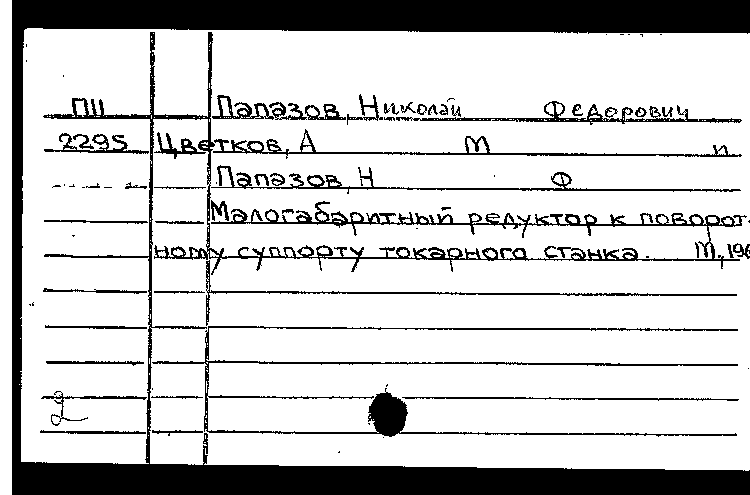 ПII Папазов, Николай Федорович
2295 Цветков, А М и
Папазов, Н Ф
Малогабаритный редуктор к поворот-
ному суппорту токарного станка. М, 196
2